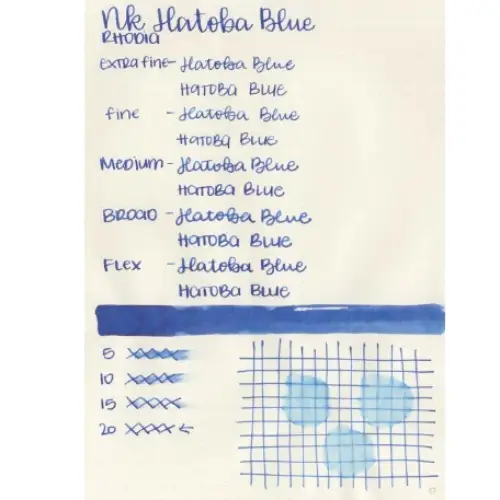 NK Hatoba Blue
RHODIA
EXTRA FINE - Hatoba Blue
HATOBA BLUE
FINE - Hatoba Blue
HATOBA BLUE
MEDIUM - Hatoba Blue
HATOBA BLUE
BROAD - Hatoba Blue
HATOBA BLUE
FLEX - Hatoba Blue
HATOBA BLUE
5 XXXX
10 XXXX
15 XXXX
20 XXXX